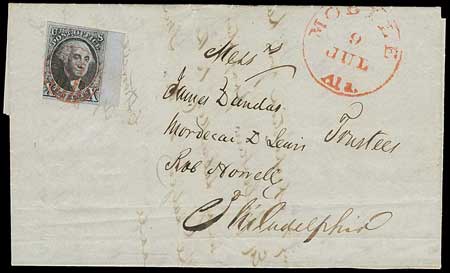 POST OFFICE
MOBILE
9
JUL
Ala.
Mess.rs
James Dundas
Mordecai D Lewis Trustees
Rob Howell
Philadelphia